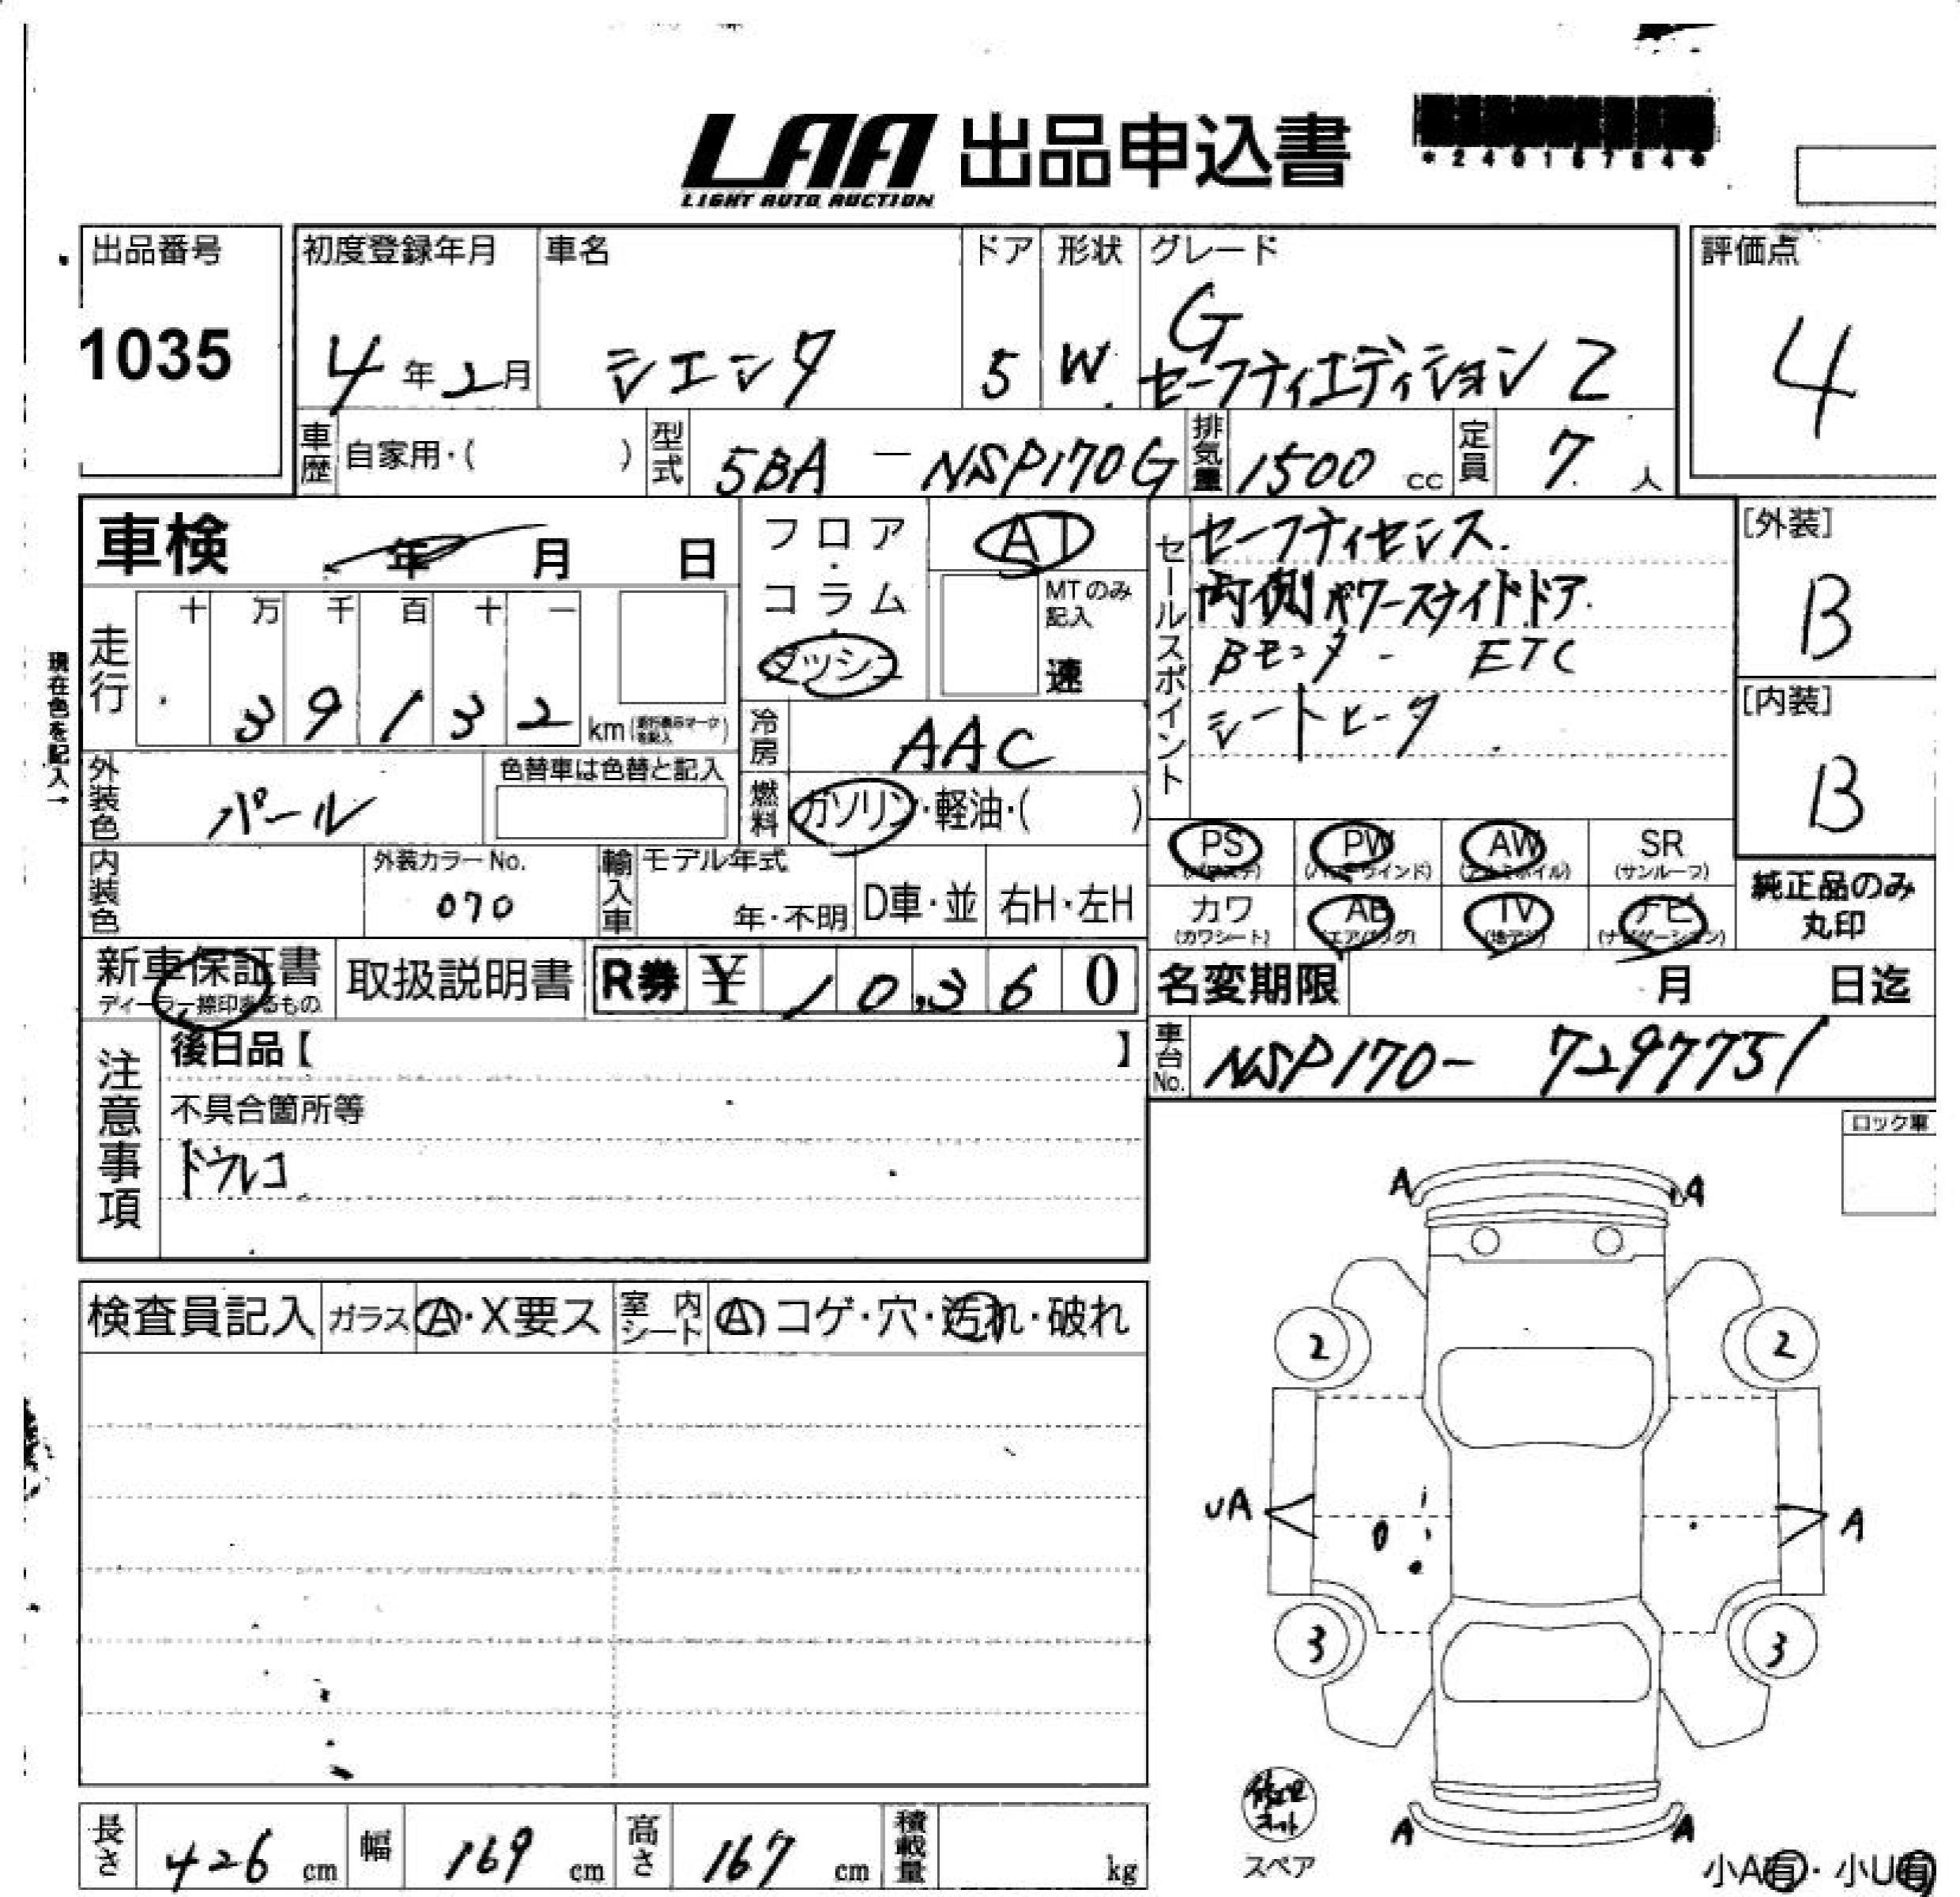 LAA 出品申込書
LIGHT AUTO AUCTION
*24016784*
出品番号
1035
初度登録年月
4年2月
車名
シエンタ
ドア
5
形状
W
グレード
G
セーフティエディション2
評価点
4
車歴 自家用・( )
型式 5BA-NSP170G
排気量 1500 cc
定員 7人
車検 年 月 日
フロア・コラム・ダッシュ
AT
MTのみ記入
速
走行
十 万 千 百 十 一
39132 km
現在色を記入→
外装色 パール
色替車は色替と記入
冷房 AAC
燃料 ガソリン・軽油・( )
内装色
外装カラーNo.
070
輸入車
モデル年式
年・不明
D車・並
右H・左H
セールスポイント
セーフティセンス
両側パワースライドドア
Bモニター ETC
シートヒータ
[外装]
B
[内装]
B
PS (パワステ)
PW (パワーウインド)
AW (アルミホイル)
SR (サンルーフ)
カワ (カワシート)
AB (エアバッグ)
TV (地デジ)
ナビ (ナビゲーション)
純正品のみ
丸印
新車保証書
ディーラー捺印あるもの
取扱説明書
R券 ¥ 10,360
名変期限 月 日迄
車台No. NSP170-7297751
注意事項
後日品【 】
不具合箇所等
ドラレコ
ロック車
検査員記入
ガラス A・X要ス
室内シート A コゲ・穴・汚れ・破れ
A A
2 2
UA A
3 3
A A
修理キット
スペア
小A有・小U有
長さ 426 cm
幅 169 cm
高さ 167 cm
積載量 kg